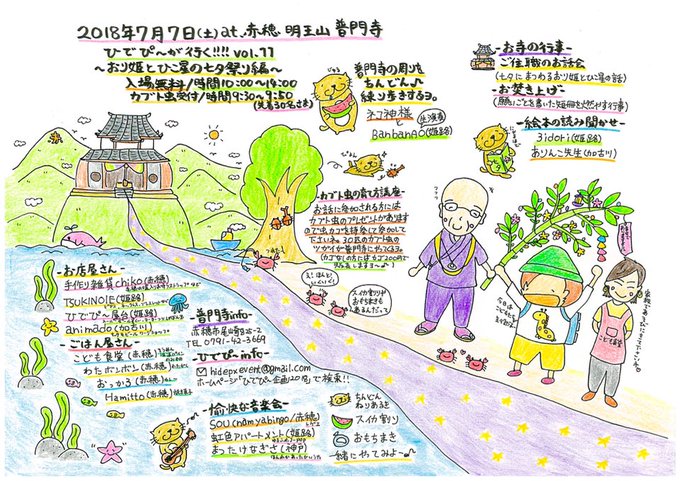 2018年7月7日(土)at.赤穂 明王山 普門寺
ひでぴ〜が行く!!!! vol.11
〜おり姫とひこ星の七夕祭り編〜
入場無料/時間10:00〜14:00
カブト虫受付/時間9:30〜9:50
(先着30名さま)
普門寺の周りを
ちんどん♪
練り歩きするヨ。
ネコ神様
と
BanbanAO(姫路)
-お寺の行事-
ご住職のお話会
(七夕にまつわるおり姫とひこ星の話)
-お焚き上げ-
(願いごとを書いた短冊を燃やす行事)
-絵本の読み聞かせ-
3idori(姫路)
ありんこ先生(加古川)
-カブト虫の育て方講座-
お話に参加される方には
カブト虫のプレゼントがあります
ので虫カゴを持参して
下さいネ。30匹のカブト虫の
ツガイが普門寺にやってくる。
(カゴなしの方にはカゴ200円で
え!ほんと
スイカ割りや
おもちまきも
あるんだって
-お店屋さん-
手作り雑貨chiko(赤穂)
TSUKINOLE(姫路)
ひでぴ〜屋台(姫路)
animado(加古川)
-ごはん屋さん-
こども食堂(赤穂)
わたボンボン(赤穂)
おっかる(赤穂)
Hamitto(赤穂)
-普門寺info-
赤穂市尾崎822-2
TEL 0791-42-3669
-ひでぴ〜info-
hidepxevent@gmail.com
ホームページ「ひでぴ〜企画20号」で検索!!
-愉快な音楽会-
SOU(namyabingo/赤穂)
虹色アパートメント(姫路)
まったけなぎさ(神戸)
ちんどん
ねりあるき
スイカ割り
おもちまき
一緒にやってみよ〜♪